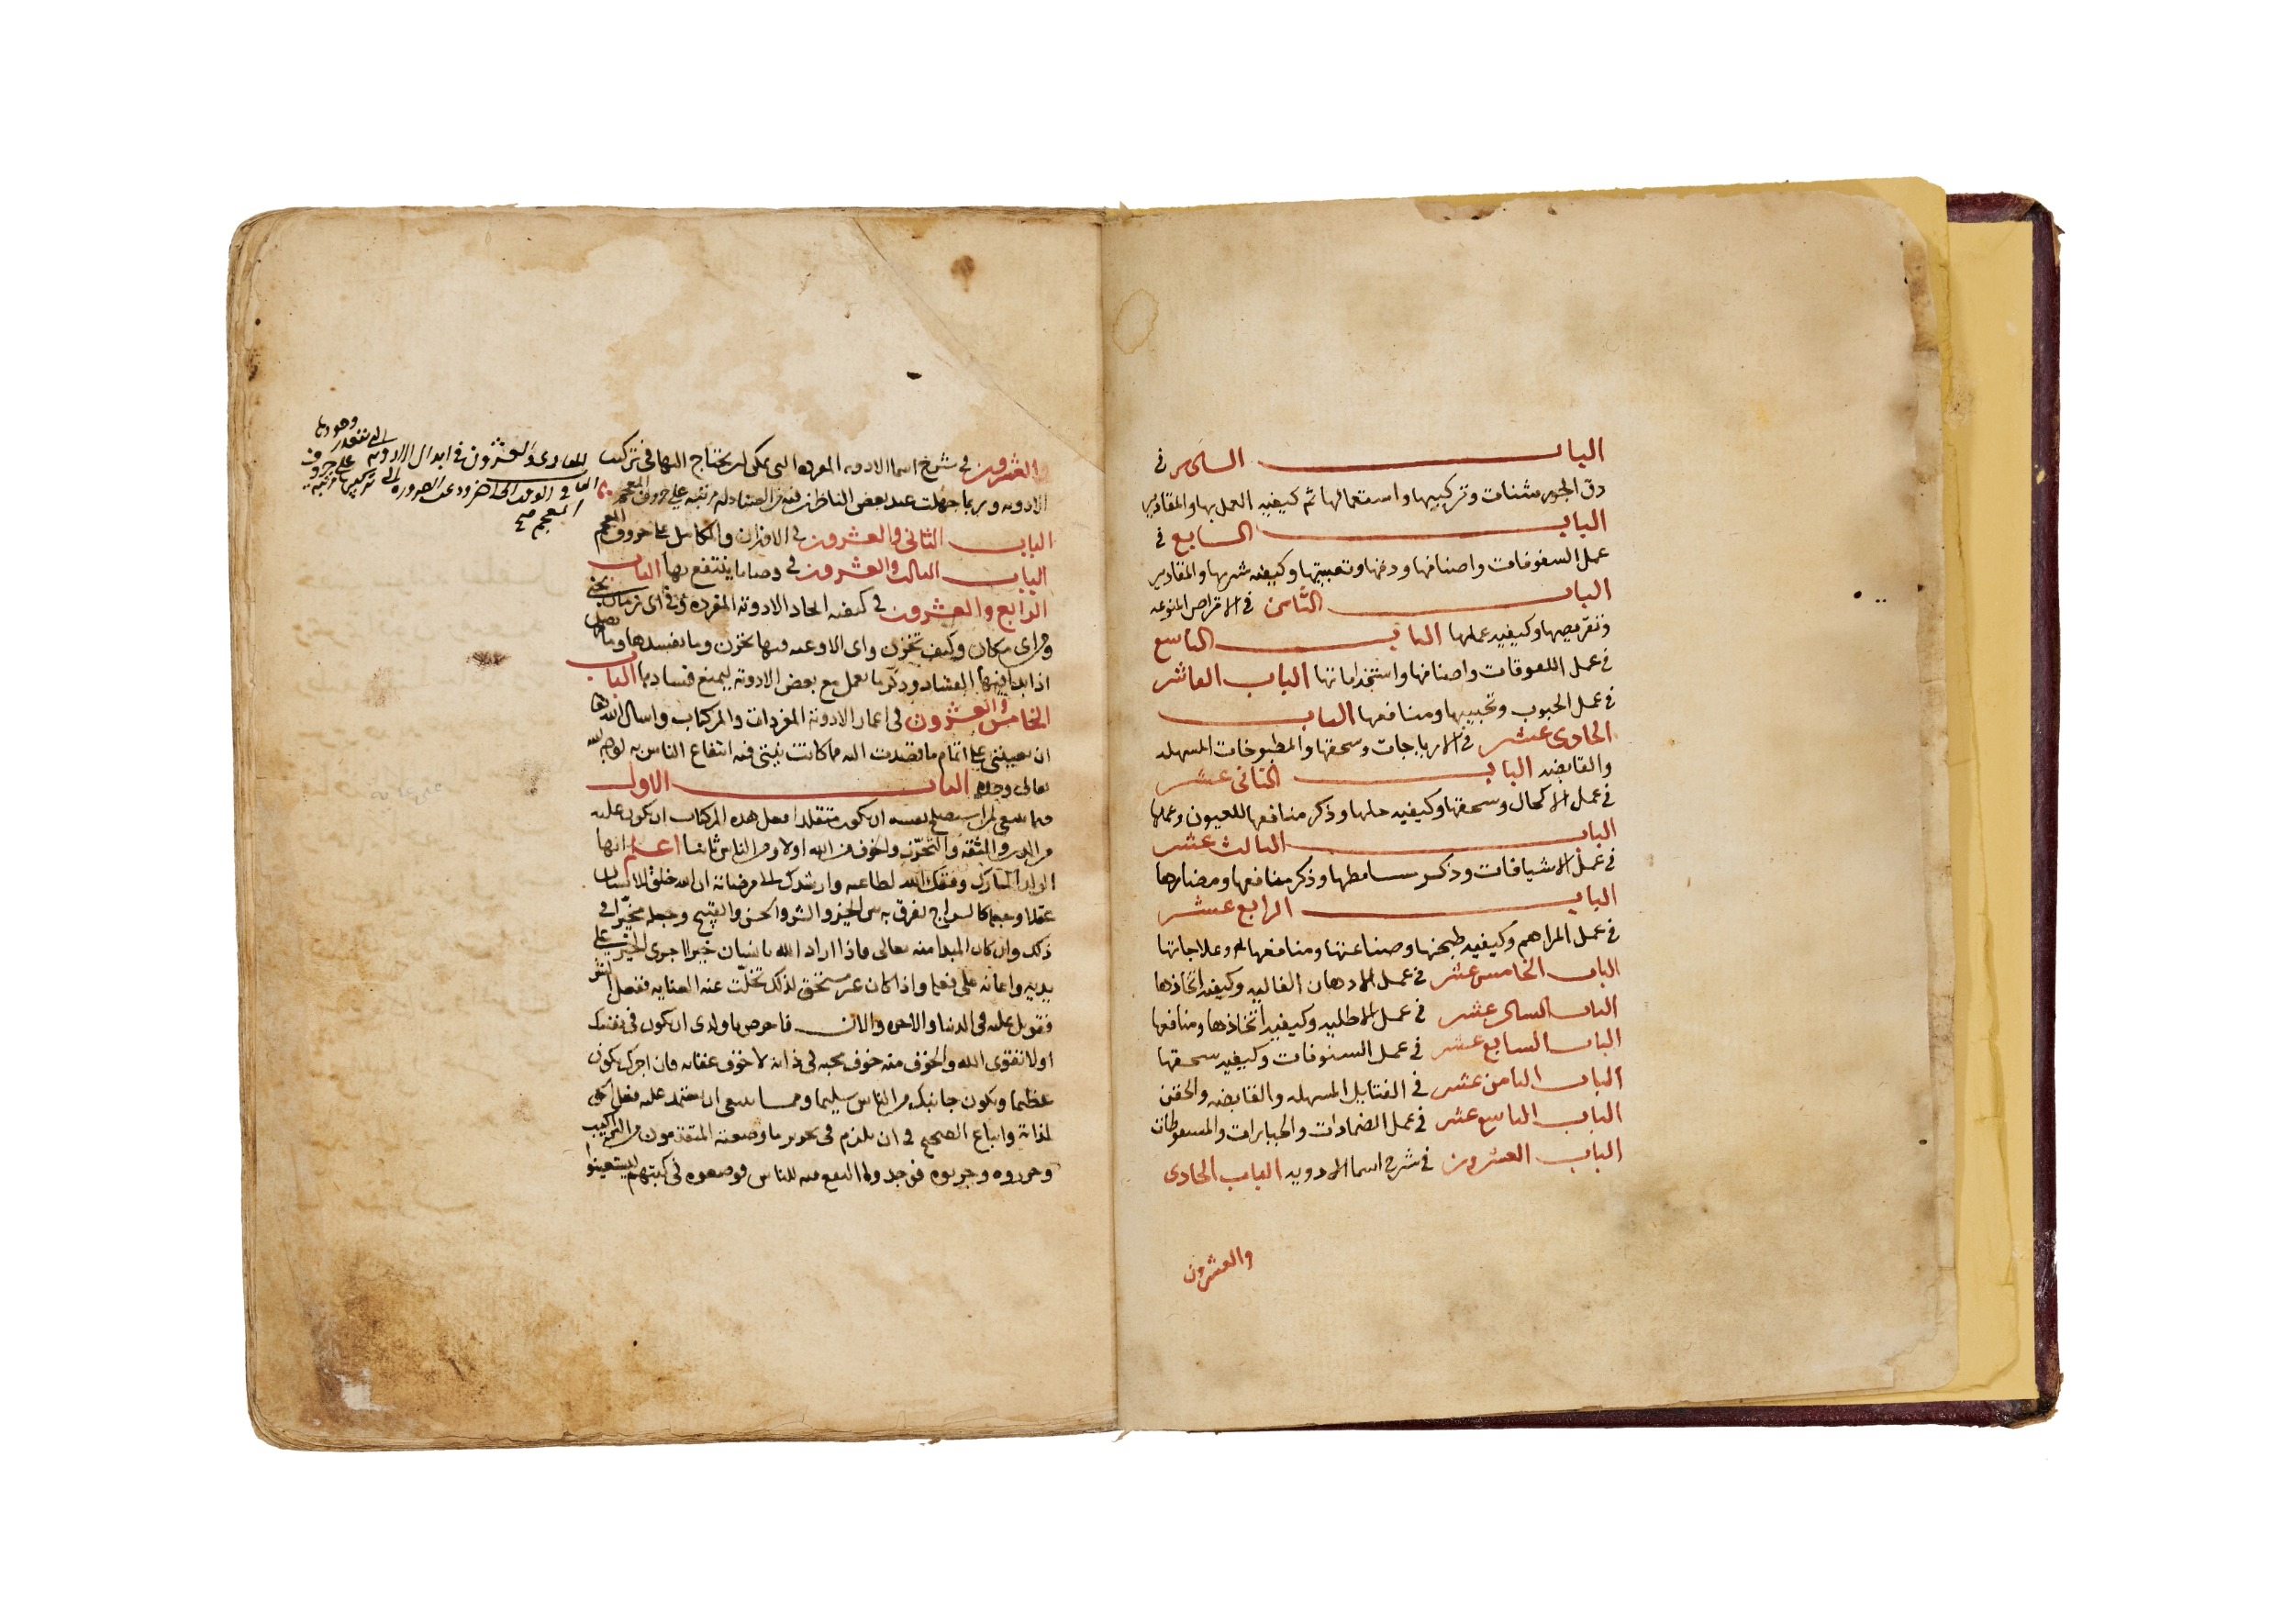 الباب السادس في
دق الجوارشنات وتركيبها واستعمالها ثم كيفيه العمل بها والمقادير
الباب السابع في
عمل السفوفات واصنافها ودقها وتعبيتها وكيفيه شربها والمقادير
الباب الثامن في الاقراص المنوعه
وتقريصها وكيفيه عملها الباب التاسع
في عمل اللعوقات واصنافها واستخداماتها الباب العاشر
في عمل الحبوب وتحبيبها ومنافعها الباب
الحادي عشر في الايارجات وسحقها والمطبوخات المسهله
والقابضه الباب الثاني عشر
في عمل الاكحال وسحقها وكيفيه حلها وذكر منافعها للعيون وعملها
الباب الثالث عشر
في عمل الاشيافات وذكر منافعها ومضارها
الباب الرابع عشر
في عمل المراهم وكيفيه طبخها وصناعتها ومنافعها وعلاجاتها
الباب الخامس عشر في عمل الادهان الغاليه وكيفيه اتخاذها
الباب السادس عشر في عمل الاطليه وكيفيه اتخاذها ومنافعها
الباب السابع عشر في عمل السنونات وكيفيه سحقها
الباب الثامن عشر في الفتايل المسهله والقابضه والحقن
الباب التاسع عشر في عمل الضمادات والجبايرات والسعوطات
الباب العشرون في شرح اسما الادويه الباب الحادي
والعشرون
والعشرون في شرح اسما الادويه المفرده التي يمكن ان يحتاج اليها في تركيب
الادويه وربما جهلت عند بعض الناظرين من الصيادله مرتبه على حروف المعجم
الحادي والعشرون في ابدال الادويه التي يتعذر وجودها
في الوقت الحاضر
المعجم صح
الباب الثاني والعشرون في الاوزان والمكاييل على حروف المعجم
الباب الثالث والعشرون في وصايا ينتفع بها الباب
الرابع والعشرون في كيفيه اتخاذ الادويه المفرده وفي اي زمان يجنى
ومن اي مكان وكيف تخزن واي الاوعيه فيها تخزن وما يفسدها وما يصلحها
اذا بدا فيها الفساد وذكر ما يعمل مع بعض الادويه ليمنع فسادها الباب
الخامس والعشرون في اعمار الادويه المفردات والمركبات واسال الله
ان يعينني على اتمام ما قصدت اليه مما كانت نيتي فيه انتفاع الناس به لوجه الله
تعالى وحده الباب الاول
فيما ينبغي لمن استصلح نفسه ان يكون متقلدا لعمل هذه المركبات ان يكون عليه
من الدين والثقه والتحرز والخوف من الله اولا ومن الناس ثانيا اعلم ايها
الولد المبارك وفقك الله لطاعته وارشدك الى مرضاته ان الله خلق للانسان
عقلا وجعله كالسراج يفرق به بين الخير والشر والحسن والقبيح وجعله مخيرا في
ذلك وان كان المبدا منه تعالى فاذا اراد الله بانسان خيرا اجرى الخير على
يديه واعانه على فعله واذا كان غير مستحق لذلك تخلت عنه العنايه ففعل الشر
فقوبل عليه في الدنيا والاخره والان فاحرص يا ولدي ان يكون في نفسك
اولا تقوى الله والخوف منه خوف محبه في ذاته لا خوف عقابه فان اجرك يكون
عظيما ويكون جانبك من الناس سليما ومما ينبغي ان يعتمد عليه فعل الحق
لذاته واتباع الصحيح في ان يلزم في تحرير ما وضعته المتقدمون من التراكيب
وحرروه وجربوه فوجدوا النفع منه للناس فوضعوه في كتبهم ليستعينوا